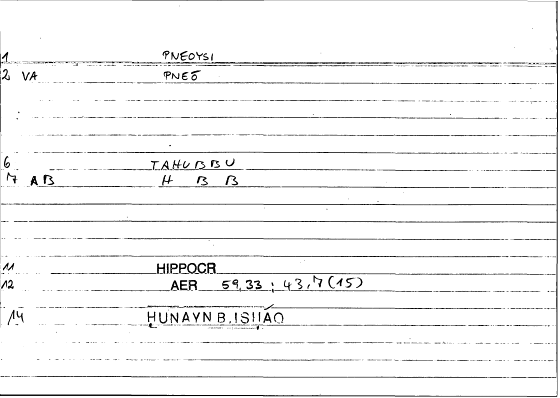 1 PNEOYSI
2 VA PNEŌ
6 TAHUBBU
7 AB H B B
11 HIPPOCR
12 AER 59,33 ; 43,7 (15)
14 ḤUNAYN B. ISḤĀQ